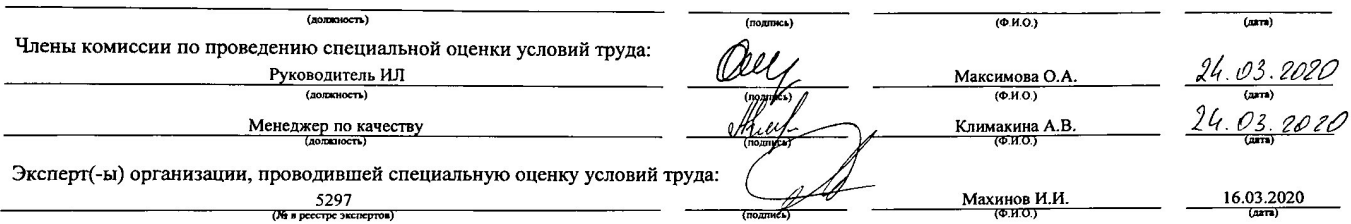 (должность) (подпись) (Ф.И.О.) (дата)
Члены комиссии по проведению специальной оценки условий труда:
Руководитель ИЛ Максимова О.А. 24.03.2020
(должность) (подпись) (Ф.И.О.) (дата)
Менеджер по качеству Климакина А.В. 24.03.2020
(должность) (подпись) (Ф.И.О.) (дата)
Эксперт(-ы) организации, проводившей специальную оценку условий труда:
5297 Махинов И.И. 16.03.2020
(№ в реестре экспертов) (подпись) (Ф.И.О.) (дата)